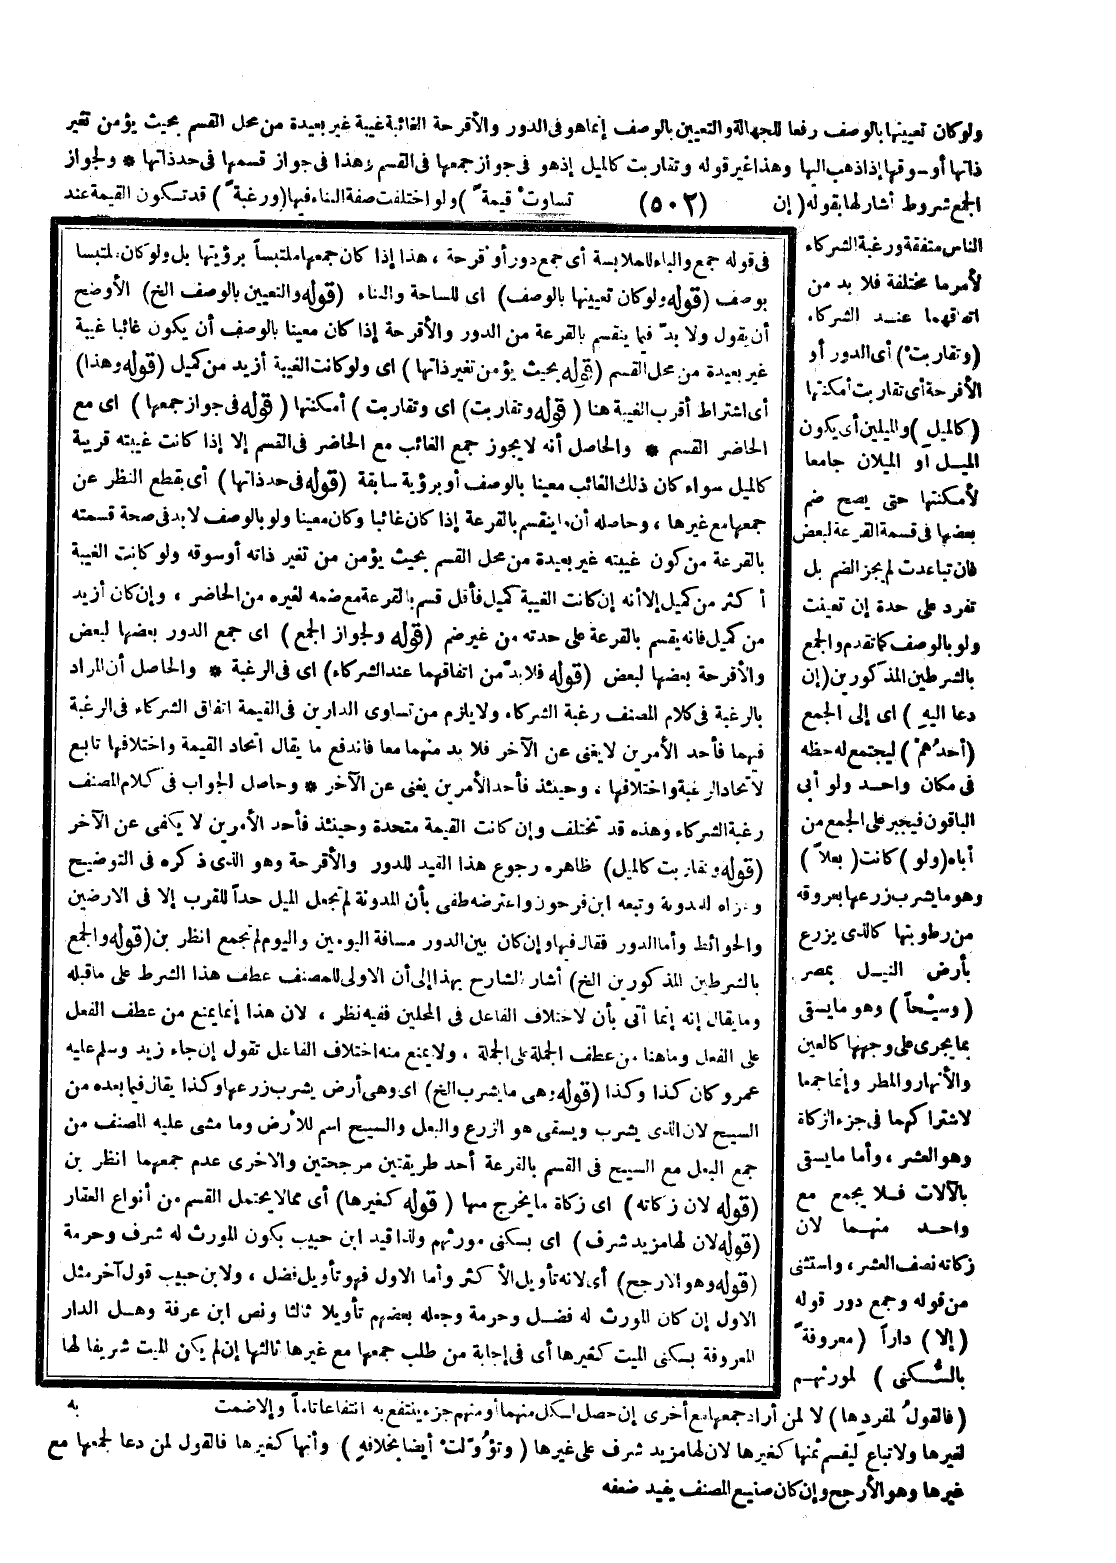 ولو كان تعيينها بالوصف رفعا للجهالة والتعيين بالوصف إنما هو فى الدور والأقرحة الغائبة غيبة غير بعيدة من محل القسم بحيث يؤمن تغير
ذاتها أو سوقها إذا ذهب اليها وهذا غير قوله وتقاربت كالميل إذ هو فى جواز جمعها فى القسم وهذا فى جواز قسمها فى حد ذاتها * ولجواز
الجمع شروط أشار لها بقوله ( إن (٥٠٢) تساوتْ قيمةً ) ولو اختلفت صفة البناء فيها ( ورغبةً ) قد تكون القيمة عند
الناس متفقة ورغبة الشركاء
لأمر ما مختلفة فلا بد من
اتفاقهما عند الشركاء
( وتقاربتْ ) أى الدور أو
الأقرحة أى تقاربت أمكنتها
( كالميلِ ) والميلين أى يكون
الميل أو الميلان جامعا
لأمكنتها حتى يصح ضم
بعضها فى قسمة القرعة لبعض
فان تباعدت لم يجز الضم بل
تفرد على حدة إن تعينت
ولو بالوصف كما تقدم والجمع
بالشرطين المذكورين ( إن
دعا اليهِ ) اى إلى الجمع
( أحدُهمْ ) ليجتمع له حظه
فى مكان واحد ولو أبى
الباقون فيجبر على الجمع من
أباه ( ولو ) كانت ( بعلاً )
وهو ما يشرب زرعها بعروقه
من رطوبتها كالذى يزرع
بأرض النيل بمصر
( وسيْحاً ) وهو ما يسقى
بما يجرى على وجهها كالعين
والأنهار والمطر وإنما جمعا
لاشتراكهما فى جزء الزكاة
وهو العشر ، وأما ما يسقى
بالآلات فلا يجمع مع
واحد منهما لان
زكاته نصف العشر ، واستثنى
من قوله وجمع دور قوله
( إلا ) داراً ( معروفةً
بالسُّكنى ) لمورثهم
( فالقولُ لمفردِها ) لا لمن أراد جمعها مع أخرى إن حصل لكل منهما أو منهم جزء ينتفع به انتفاعا تاماً وإلا ضمت به
لغيرها ولا تباع ليقسم ثمنها كغيرها لان لها مزيد شرف على غيرها ( وتؤُوّلتْ أيضا بخلافهِ ) وأنها كغيرها فالقول لمن دعا لجمعها مع
غيرها وهو الأرجح وإن كان صنيع المصنف يفيد ضعفه
فى قوله جمع والباء للملابسة أى جمع دور أو أقرحة ، هذا إذا كان جمعها ملتبساً برؤيتها بل ولو كان ملتبسا
بوصف ( قوله ولو كان تعيينها بالوصف ) اى للساحة والبناء ( قوله والتعيين بالوصف الخ ) الأوضح
أن يقول ولا بدّ فيما ينقسم بالقرعة من الدور والأقرحة إذا كان معينا بالوصف أن يكون غائبا غيبة
غير بعيدة من محل القسم ( قوله بحيث يؤمن تغير ذاتها ) اى ولو كانت الغيبة أزيد من كميل ( قوله وهذا )
أى اشتراط أقرب الغيبة هنا ( قوله وتقاربت ) اى وتقاربت ) أمكنتها ( قوله فى جواز جمعها ) اى مع
الحاضر القسم * والحاصل أنه لا يجوز جمع الغائب مع الحاضر فى القسم إلا إذا كانت غيبته قريبة
كالميل سواء كان ذلك الغائب معينا بالوصف أو برؤية سابقة ( قوله فى حد ذاتها ) أى بقطع النظر عن
جمعها مع غيرها ، وحاصله أن ما ينقسم بالقرعة إذا كان غائبا وكان معينا ولو بالوصف لا بد فى صحة قسمته
بالقرعة من كون غيبته غير بعيدة من محل القسم بحيث يؤمن من تغير ذاته أو سوقه ولو كانت الغيبة
أكثر من كميل إلا أنه إن كانت الغيبة كميل فأقل قسم بالقرعة مع ضمه لغيره من الحاضر ، وإن كان أزيد
من كميل فانه يقسم بالقرعة على حدته من غير ضم ( قوله ولجواز الجمع ) اى جمع الدور بعضها لبعض
والأقرحة بعضها لبعض ( قوله فلا بدّ من اتفاقهما عند الشركاء ) اى فى الرغبة * والحاصل أن المراد
بالرغبة فى كلام المصنف رغبة الشركاء ولا يلزم من تساوى الدارين فى القيمة اتفاق الشركاء فى الرغبة
فيهما فأحد الأمرين لا يغنى عن الآخر فلا بد منهما معا فاندفع ما يقال اتحاد القيمة واختلافها تابع
لاتحاد الرغبة واختلافها ، وحينئذ فأحد الأمرين يغنى عن الآخر * وحاصل الجواب فى كلام المصنف
رغبة الشركاء وهذه قد تختلف وإن كانت القيمة متحدة وحينئذ فأحد الأمرين لا يكفى عن الآخر
( قوله وتقاربت كالميل ) ظاهره رجوع هذا القيد للدور والأقرحة وهو الذى ذكره فى التوضيح
وعزاه للمدونة وتبعه ابن فرحون واعترضه طفى بأن المدونة لم تجعل الميل حداً للقرب إلا فى الارضين
والحوائط وأما الدور فقال فيها وإن كان بين الدور مسافة اليومين واليوم لم تجمع انظر بن ( قوله والجمع
بالشرطين المذكورين الخ ) أشار الشارح بهذا إلى أن الاولى للمصنف عطف هذا الشرط على ما قبله
وما يقال إنه إنما أتى بأن لاختلاف الفاعل فى المحلين ففيه نظر ، لان هذا إنما يمنع من عطف الفعل
على الفعل وما هنا من عطف الجملة على الجملة ، ولا يمنع منه اختلاف الفاعل تقول إن جاء زيد وسلم عليه
عمرو كان كذا وكذا ( قوله وهى ما يشرب الخ ) اى وهى أرض يشرب زرعها وكذا يقال فيما بعده من
السيح لان الذى يشرب ويسقى هو الزرع والبعل والسيح اسم للأرض وما مشى عليه المصنف من
جمع البعل مع السيح فى القسم بالقرعة أحد طريقتين مرجحتين والاخرى عدم جمعهما انظر بن
( قوله لان زكاته ) اى زكاة ما يخرج منها ( قوله كغيرها ) أى مما لا يحتمل القسم من أنواع العقار
( قوله لان لها مزيد شرف ) اى بسكنى مورثهم ولذا قيد ابن حبيب بكون المورث له شرف وحرمة
( قوله وهو الارجح ) أى لانه تأويل الأكثر وأما الاول فهو تأويل فضل ، ولابن حبيب قول آخر مثل
الاول إن كان المورث له فضل وحرمة وجعله بعضهم تأويلا ثالثا ونص ابن عرفة وهل الدار
المعروفة بسكنى الميت كغيرها أى فى إجابة من طلب جمعها مع غيرها ثالثها إن لم يكن الميت شريفا لها